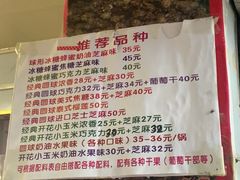 推荐品种
球形冰糖蜂蜜奶油芝麻味 35元
冰糖蜂蜜焦糖芝麻味 40元
冰糖蜂蜜巧克力芝麻味 45元
经典圆球浓香28元+芝麻30元
经典圆球巧克力32元+芝麻34元+葡萄干40元
经典圆球美式焦糖38元+芝麻40元
经典圆球泰式榴莲50元
经典圆球进口芝士芝麻50元
经典开花小玉米浓香25元+芝麻27元
经典开花小玉米巧克力30元+芝麻32元
圆球奶油水果味(各种口味)35-36元/锅
开花小玉米奶油水果味30元+芝麻32元
可根据配料表自由搭配各种配料,配有各种干果(葡萄干都等)